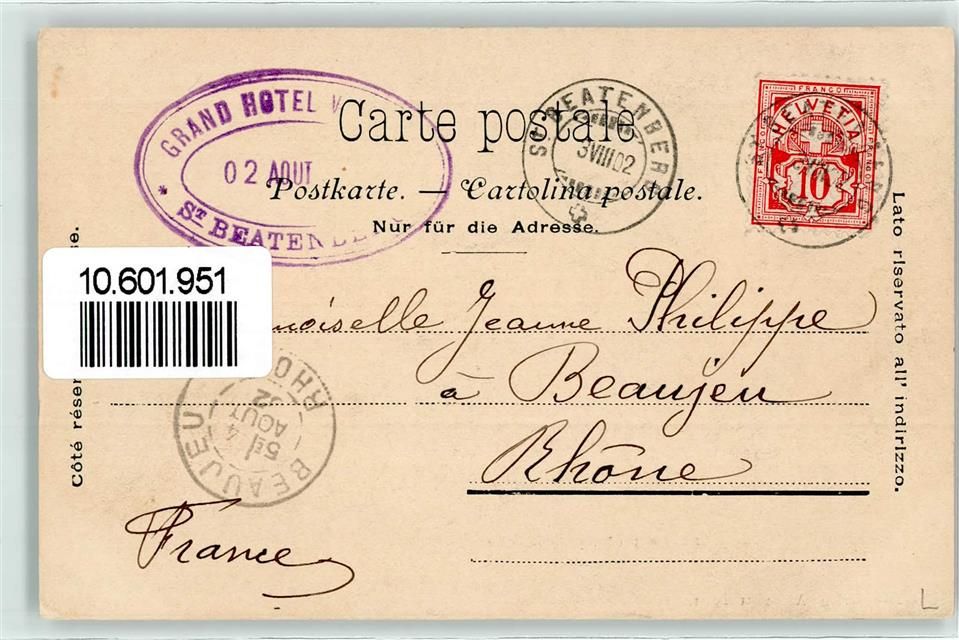 GRAND HOTEL
02 AOUT
* ST BEATENBE
Carte postale
Postkarte. — Cartolina postale.
Nur für die Adresse.
ST BEATENBERG
3 VIII 02
FRANCO
HELVETIA
10
FRANCO
FRANCO
10.601.951
moiselle Jeanne Philippe
à Beaujeu
Rhône
France
BEAUJEU
RHO
5E
4
AOUT
02
Côté réser
se.
Lato riservato all' indirizzo.
L